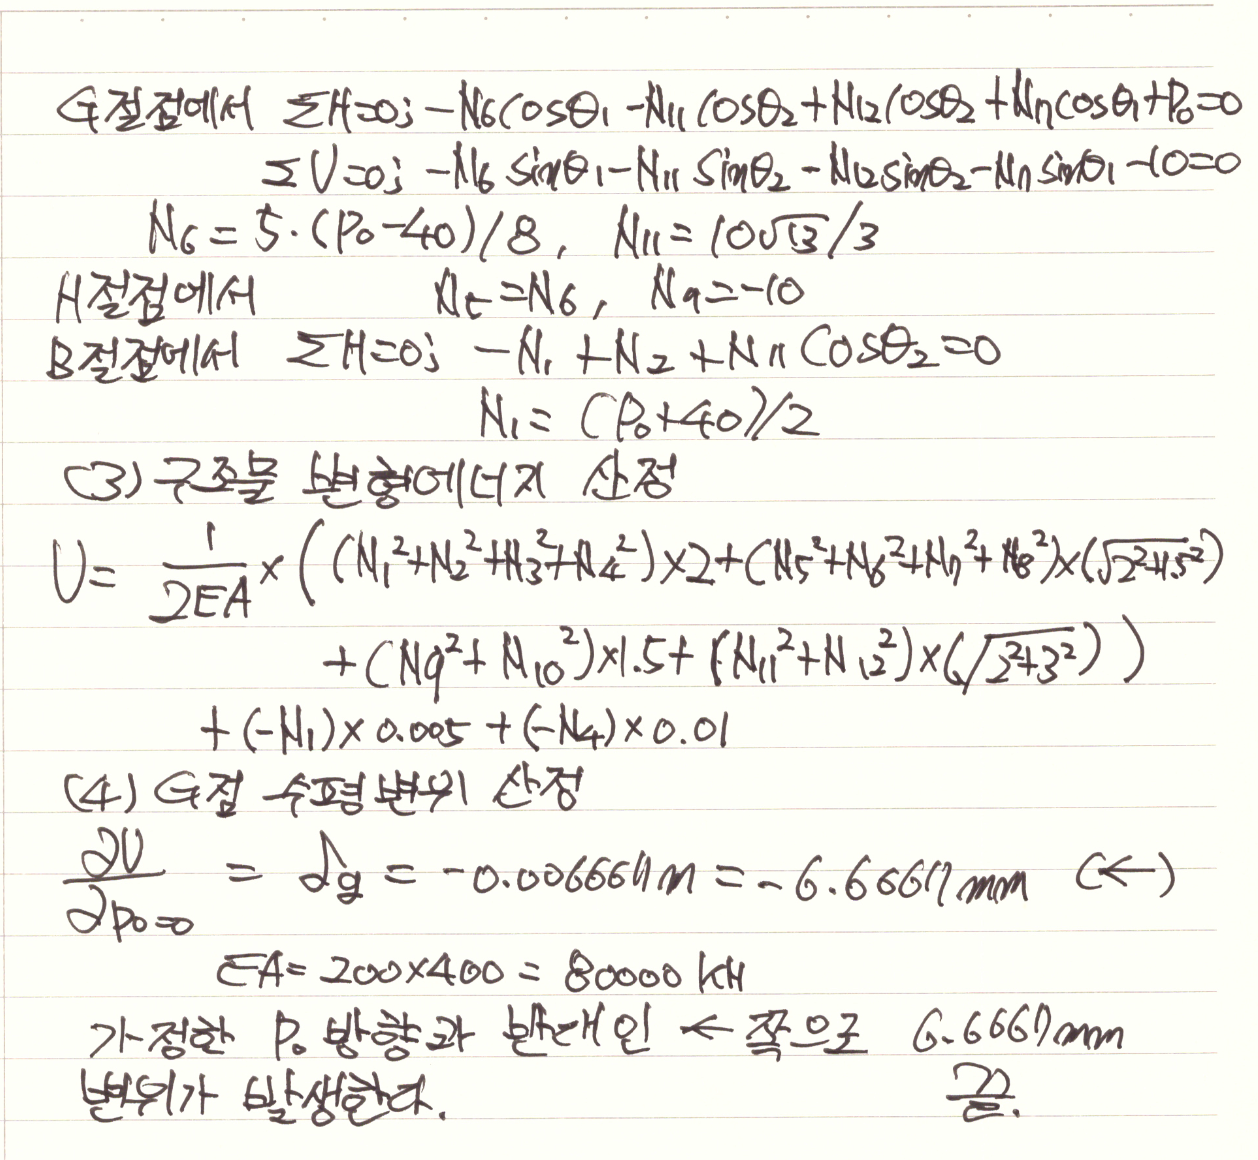 G절점에서 ΣH=0; -N6cosθ1 -N11cosθ2+N12cosθ2+N7cosθ1+P0=0
ΣV=0; -N6 sinθ1-N11 sinθ2-N12sinθ2-N7sinθ1-10=0
N6=5·(P0-40)/8, N11=10√13/3
H절점에서 N5=N6, N9=-10
B절점에서 ΣH=0; -N1+N2+N11cosθ2=0
N1=(P0+40)/2
(3) 구조물 변형에너지 산정
U= 1/2EA×((N1²+N2²+N3²+N4²)×2+(N5²+N6²+N7²+N8²)×(√2²+1.5²)
+(N9²+N10²)×1.5+(N11²+N12²)×(√2²+3²))
+(-N1)×0.005+(-N4)×0.01
(4) G점 수평변위 산정
∂U/∂P0=0 = δg = -0.0066667m=-6.6667mm (←)
EA=200×400=80000kN
가정한 P0 방향과 반대인 ← 쪽으로 6.6667mm
변위가 발생한다. 끝.